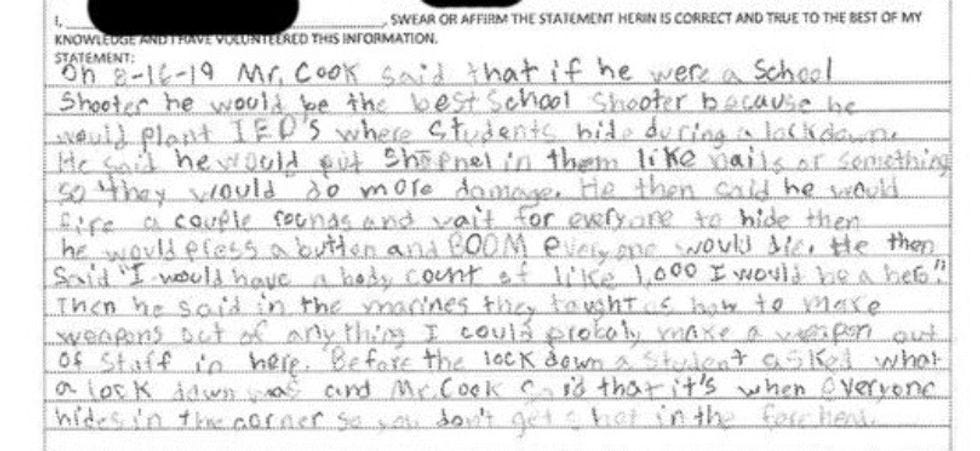 I, , SWEAR OR AFFIRM THE STATEMENT HERIN IS CORRECT AND TRUE TO THE BEST OF MY
KNOWLEDGE AND I HAVE VOLUNTEERED THIS INFORMATION.
STATEMENT:
On 8-16-19 Mr. Cook said that if he were a School
Shooter he would be the best School Shooter because he
would plant IED's where students hide during a lockdown.
He said he would put in them like nails or something
so they would do more damage. He then said he would
fire a couple rounds and wait for everyone to hide then
he would press a button and BOOM everyone would die. He then
Said "I would have a body count of like 1,000 I would be a hero."
Then he said in the marines they taught us how to make
weapons out of anything I could probaly make a weapon out
of staff in here. Before the lock down a student asked what
a lock down was and Mr. Cook said that it's when everyone
hides in the corner so you don't get shot in the forehead.